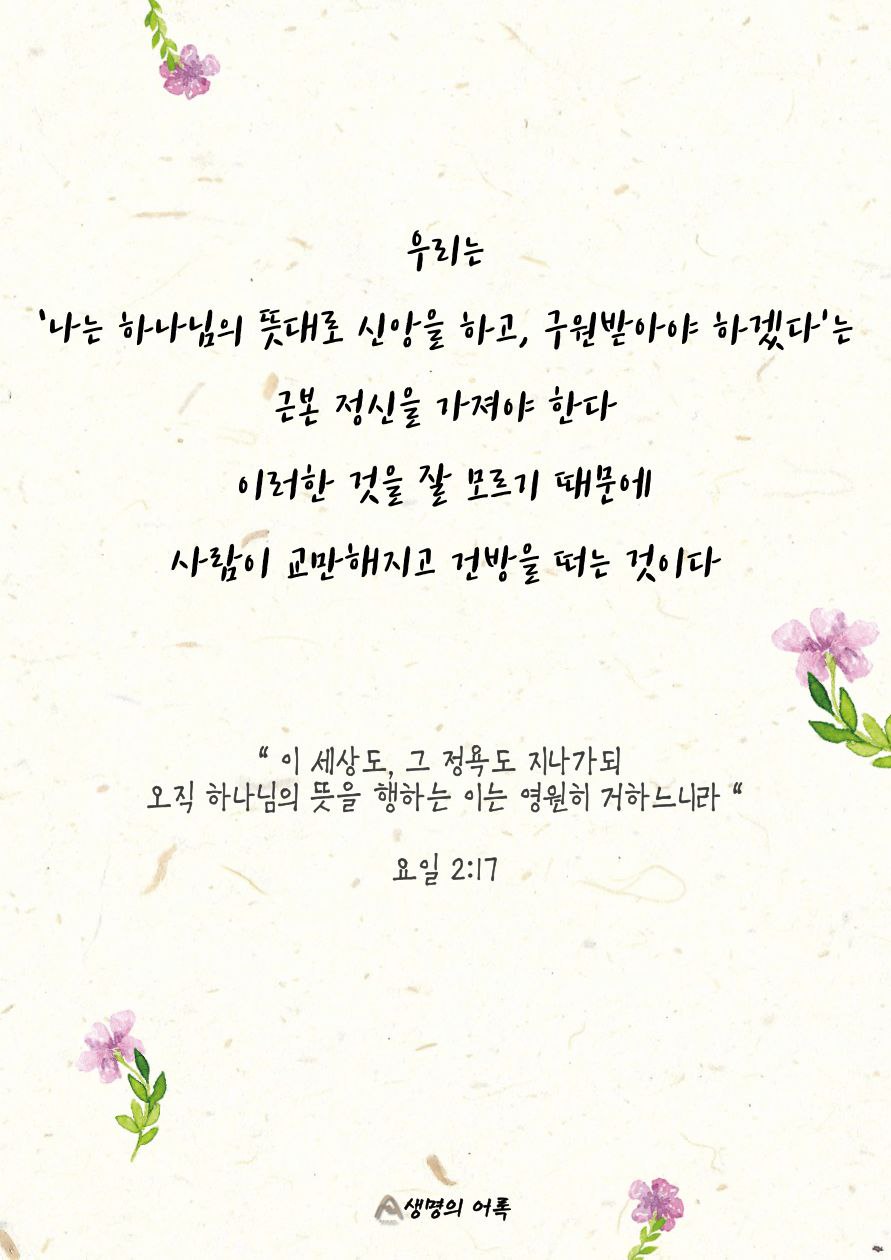 우리는
'나는 하나님의 뜻대로 신앙을 하고, 구원받아야 하겠다'는
근본 정신을 가져야 한다
이러한 것을 잘 모르기 때문에
사람이 교만해지고 건방을 떠는 것이다
“ 이 세상도, 그 정욕도 지나가되
오직 하나님의 뜻을 행하는 이는 영원히 거하느니라 “
요일 2:17
생명의 어록